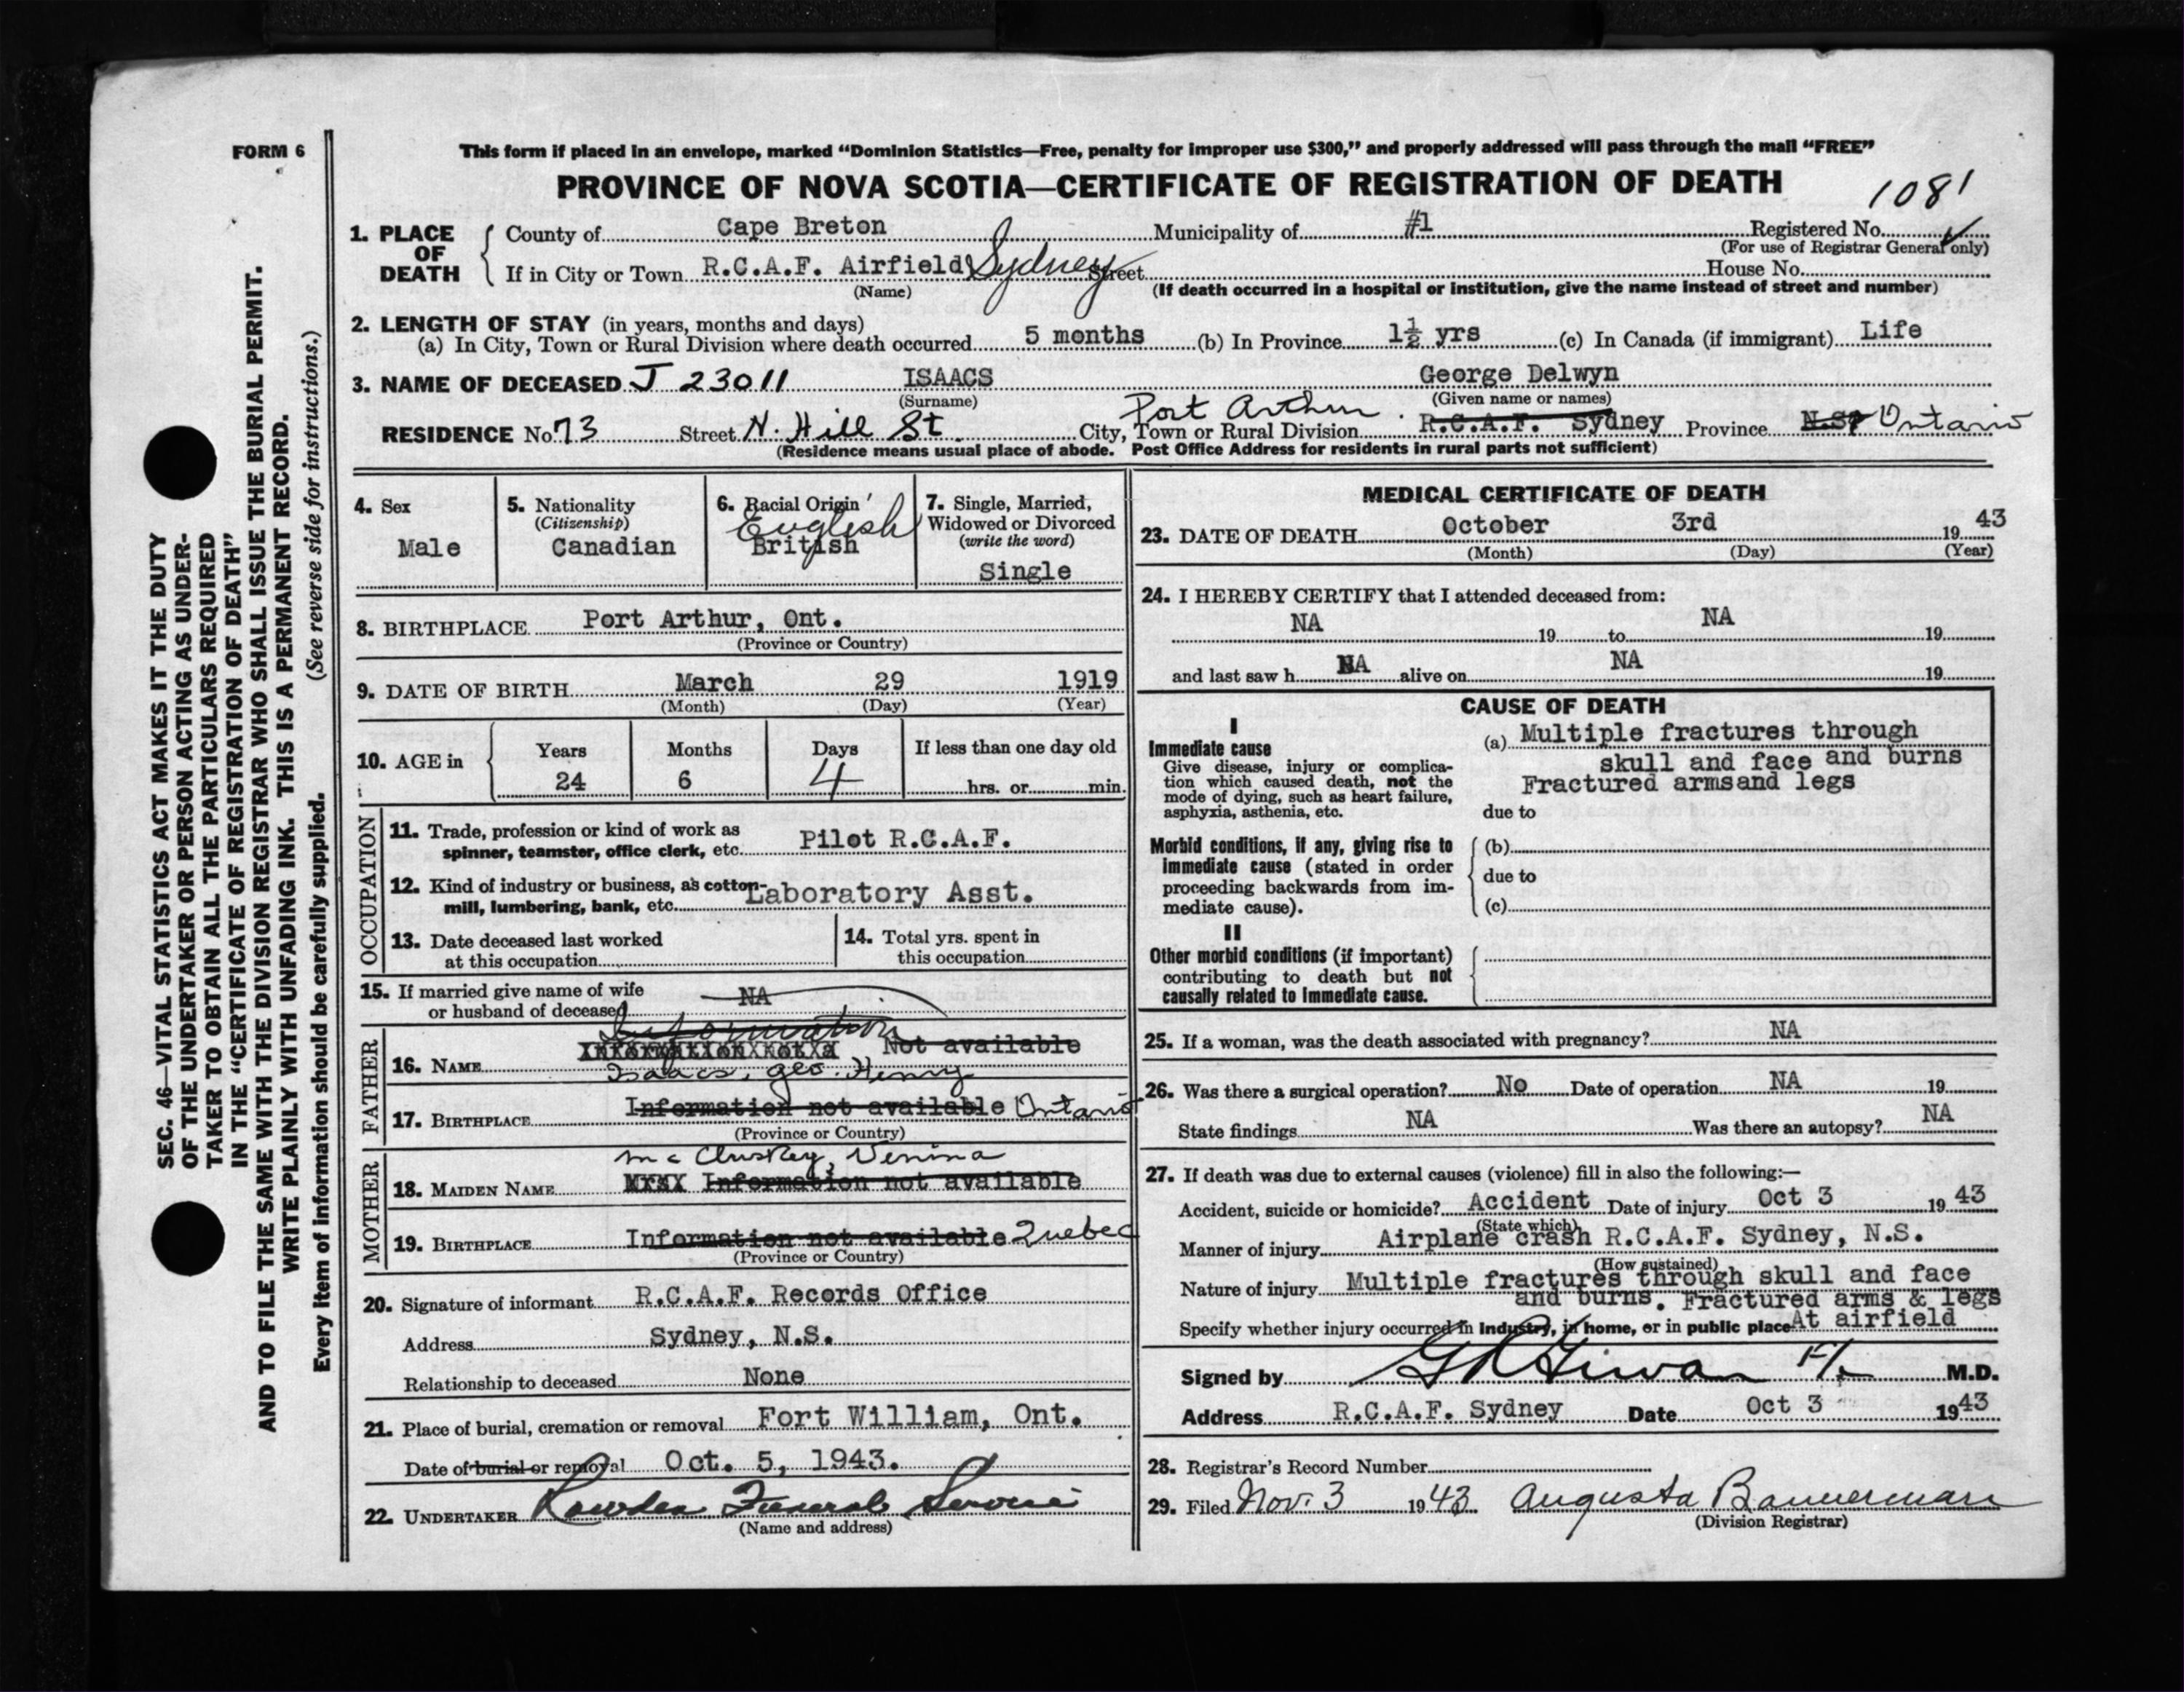 FORM 6
This form if placed in an envelope, marked “Dominion Statistics—Free, penalty for improper use $300,” and properly addressed will pass through the mail “FREE”
PROVINCE OF NOVA SCOTIA—CERTIFICATE OF REGISTRATION OF DEATH
1081
SEC. 46—VITAL STATISTICS ACT MAKES IT THE DUTY
OF THE UNDERTAKER OR PERSON ACTING AS UNDER-
TAKER TO OBTAIN ALL THE PARTICULARS REQUIRED
IN THE “CERTIFICATE OF REGISTRATION OF DEATH”
AND TO FILE THE SAME WITH THE DIVISION REGISTRAR WHO SHALL ISSUE THE BURIAL PERMIT.
WRITE PLAINLY WITH UNFADING INK. THIS IS A PERMANENT RECORD.
Every item of information should be carefully supplied. (See reverse side for instructions.)
1. PLACE OF DEATH
County of Cape Breton Municipality of #1 Registered No.
(For use of Registrar General only)
If in City or Town R.C.A.F. Airfield Sydney Street House No.
(Name) (If death occurred in a hospital or institution, give the name instead of street and number)
2. LENGTH OF STAY (in years, months and days)
(a) In City, Town or Rural Division where death occurred 5 months (b) In Province 1½ yrs (c) In Canada (if immigrant) Life
3. NAME OF DECEASED J 23011 ISAACS George Delwyn
(Surname) (Given name or names)
Port Arthur
RESIDENCE No. 73 Street N. Hill St. City, Town or Rural Division R.C.A.F. Sydney Province N.S. Ontario
(Residence means usual place of abode. Post Office Address for residents in rural parts not sufficient)
4. Sex
Male
5. Nationality
(Citizenship)
Canadian
6. Racial Origin
English
British
7. Single, Married,
Widowed or Divorced
(write the word)
Single
8. BIRTHPLACE Port Arthur, Ont.
(Province or Country)
9. DATE OF BIRTH March 29 1919
(Month) (Day) (Year)
10. AGE in Years Months Days If less than one day old
24 6 4 hrs. or min.
OCCUPATION
11. Trade, profession or kind of work as
spinner, teamster, office clerk, etc. Pilot R.C.A.F.
12. Kind of industry or business, as cotton-
mill, lumbering, bank, etc. Laboratory Asst.
13. Date deceased last worked
at this occupation
14. Total yrs. spent in
this occupation
15. If married give name of wife
or husband of deceased NA
FATHER
Information
Information Not a Not available
16. NAME Isaacs, Geo. Henry
17. BIRTHPLACE Information not available Ontario
(Province or Country)
MOTHER
McCluskey, Venina
18. MAIDEN NAME Information not available
19. BIRTHPLACE Information not available Quebec
(Province or Country)
20. Signature of informant R.C.A.F. Records Office
Address Sydney, N.S.
Relationship to deceased None
21. Place of burial, cremation or removal Fort William, Ont.
Date of burial or removal Oct. 5, 1943.
22. UNDERTAKER Funeral Service
(Name and address)
MEDICAL CERTIFICATE OF DEATH
23. DATE OF DEATH October 3rd 1943
(Month) (Day) (Year)
24. I HEREBY CERTIFY that I attended deceased from:
NA 19 to NA 19
and last saw h NA alive on NA 19
CAUSE OF DEATH
I
Immediate cause
Give disease, injury or complica-
tion which caused death, not the
mode of dying, such as heart failure,
asphyxia, asthenia, etc.
(a) Multiple fractures through
skull and face and burns
Fractured armsand legs
due to
Morbid conditions, if any, giving rise to
immediate cause (stated in order
proceeding backwards from im-
mediate cause).
(b)
due to
(c)
II
Other morbid conditions (if important)
contributing to death but not
causally related to immediate cause.
25. If a woman, was the death associated with pregnancy? NA
26. Was there a surgical operation? No Date of operation NA 19
State findings NA Was there an autopsy? NA
27. If death was due to external causes (violence) fill in also the following:—
Accident, suicide or homicide? Accident Date of injury Oct 3 1943
(State which)
Manner of injury Airplane crash R.C.A.F. Sydney, N.S.
(How sustained)
Nature of injury Multiple fractures through skull and face
and burns. Fractured arms & legs
Specify whether injury occurred in industry, in home, or in public place At airfield
Signed by F/L M.D.
Address R.C.A.F. Sydney Date Oct 3 1943
28. Registrar's Record Number
29. Filed Nov. 3 1943 Augusta Bannerman
(Division Registrar)